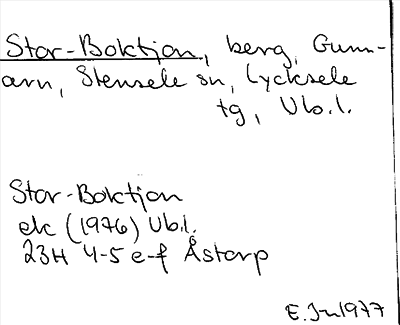 Stor-Boktjan, berg, Gunn-
arn, Stensele sn, Lycksele
tg, Vb.l.
Stor-Boktjan
ek (1976) Vb.l.
23H 4-5 e-f Åstorp
E.Jn 1977